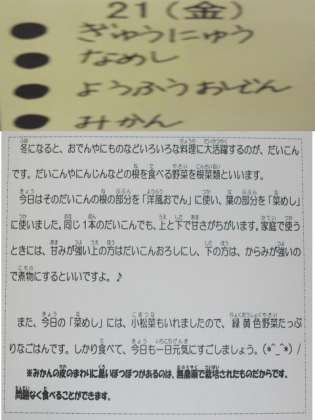 21(金)
ぎゅうにゅう
なめし
ようふうおでん
みかん
冬になると、おでんやにものなどいろいろな料理に大活躍するのが、だいこん
です。だいこんやにんじんなどの根を食べる野菜を根菜類といいます。
今日はそのだいこんの根の部分を「洋風おでん」に使い、葉の部分を「菜めし」
に使いました。同じ1本のだいこんでも、上と下で甘さがちがいます。家庭で使う
ときには、甘みが強い上の方はだいこんおろしにし、下の方は、からみが強いの
で煮物にするといいですよ。♪
また、今日の「菜めし」には、小松菜もいれましたので、緑黄色野菜たっぷ
りなごはんです。しっかり食べて、今日も一日元気にすごしましょう。(*^_^*)/
※みかんの皮のまわりに黒いぽつぽつがあるのは、無農薬で栽培されたものだからです。
問題なく食べることができます。